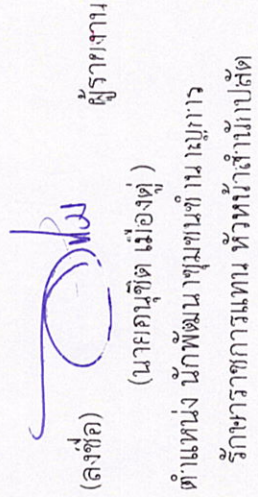 (ลงชื่อ) ผู้รายงาน
(นายอนุชิต เมืองดู่)
ตำแหน่ง นักพัฒนาชุมชนชำนาญการ
รักษาราชการแทน หัวหน้าสำนักปลัด